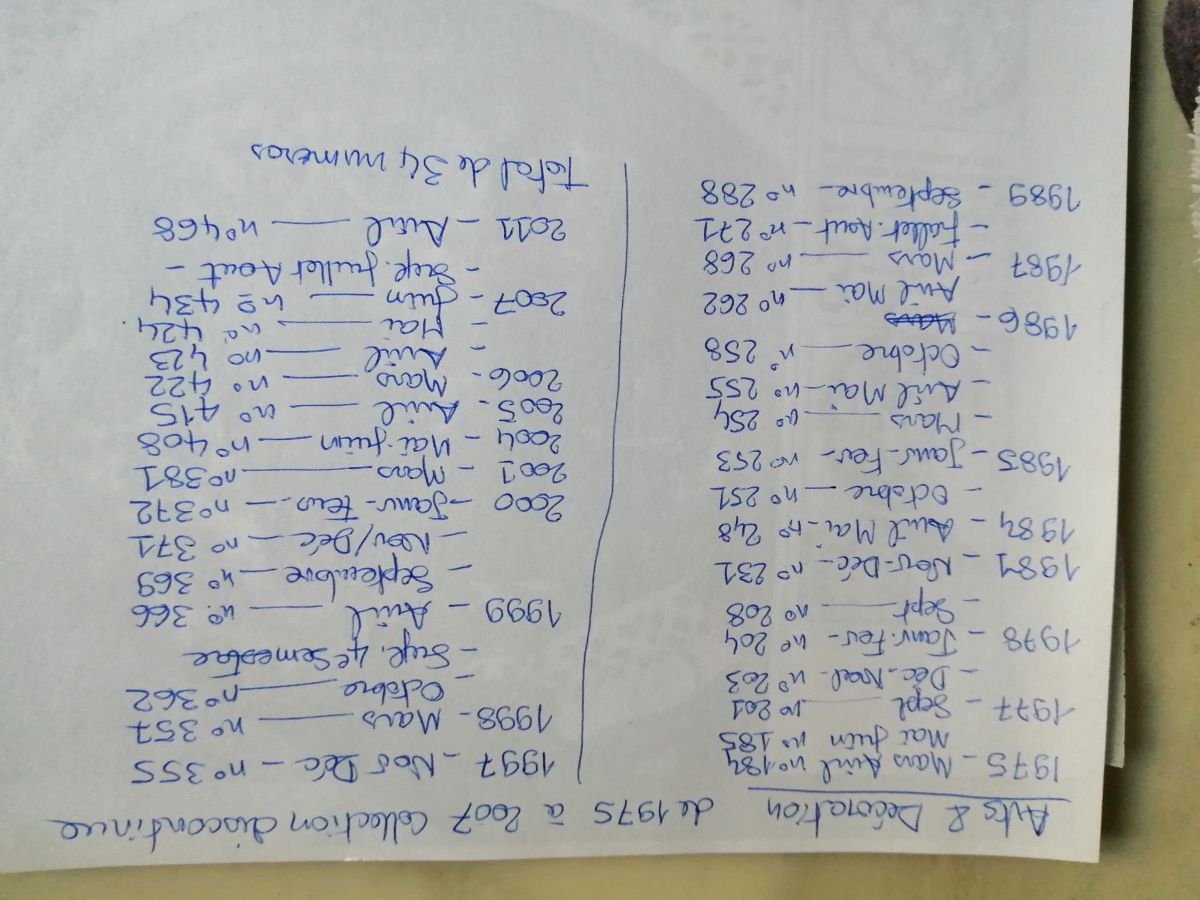 Arts & Décoration de 1975 à 2007 collection discontinue
1975 - Mars Avril n° 184
Mai Juin n° 185
1977 - Sept — n° 201
- Déc. Noel - n° 203
1978 - Janv. Fev - n° 204
- Sept — n° 208
1981 - Nov-Déc - n° 231
1984 - Avril Mai - n° 248
- Octobre — n° 251
1985 - Janv-Fev - n° 253
- Mars — n° 254
- Avril Mai — n° 255
- Octobre — n° 258
1986 - Mars
Avril Mai — n° 262
1987 - Mars — n° 268
- Juillet. Aout - n° 271
1989 - Septembre - n° 288
1997 - Nov Déc - n° 355
1998 - Mars — n° 357
- Octobre — n° 362
- Sup. 4e Semestre
1999 - Avril — n° 366
- Septembre — n° 369
- Nov/Déc — n° 371
2000 - Janv - Fev. — n° 372
2001 - Mars — n° 381
2004 - Mai-Juin — n° 408
2005 - Avril — n° 415
2006 - Mars — n° 422
- Avril — n° 423
- Mai — n° 424
2007 - Juin — n° 434
- Sup. Juillet Aout -
2011 - Avril — n° 468
Total de 34 numeros